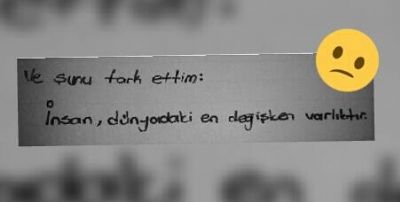 Ve şunu fark ettim:
İnsan, dünyadaki en değişken varlıktır.